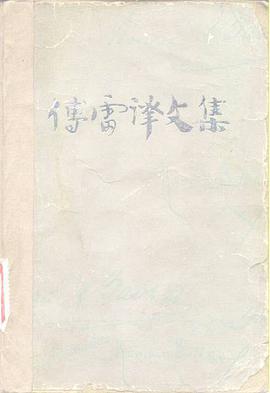 傅雷译文集